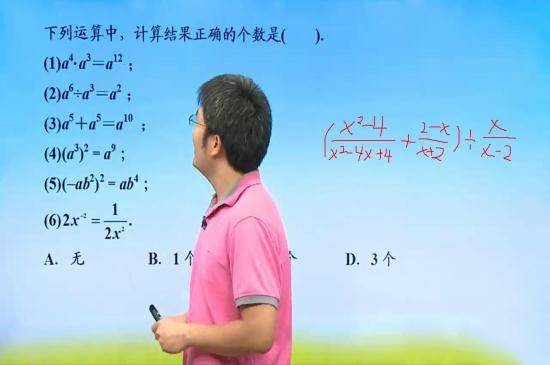 下列运算中，计算结果正确的个数是(    ).
(1)a⁴·a³=a¹²；
(2)a⁶÷a³=a²；
(3)a⁵+a⁵=a¹⁰；
(4)(a³)²=a⁹；
(5)(−ab²)²=ab⁴；
(6)2x⁻²=1/(2x²).
A. 无 B. 1个 个 D. 3个
((x²−4)/(x²−4x+4)+(2−x)/(x+2))÷x/(x−2)